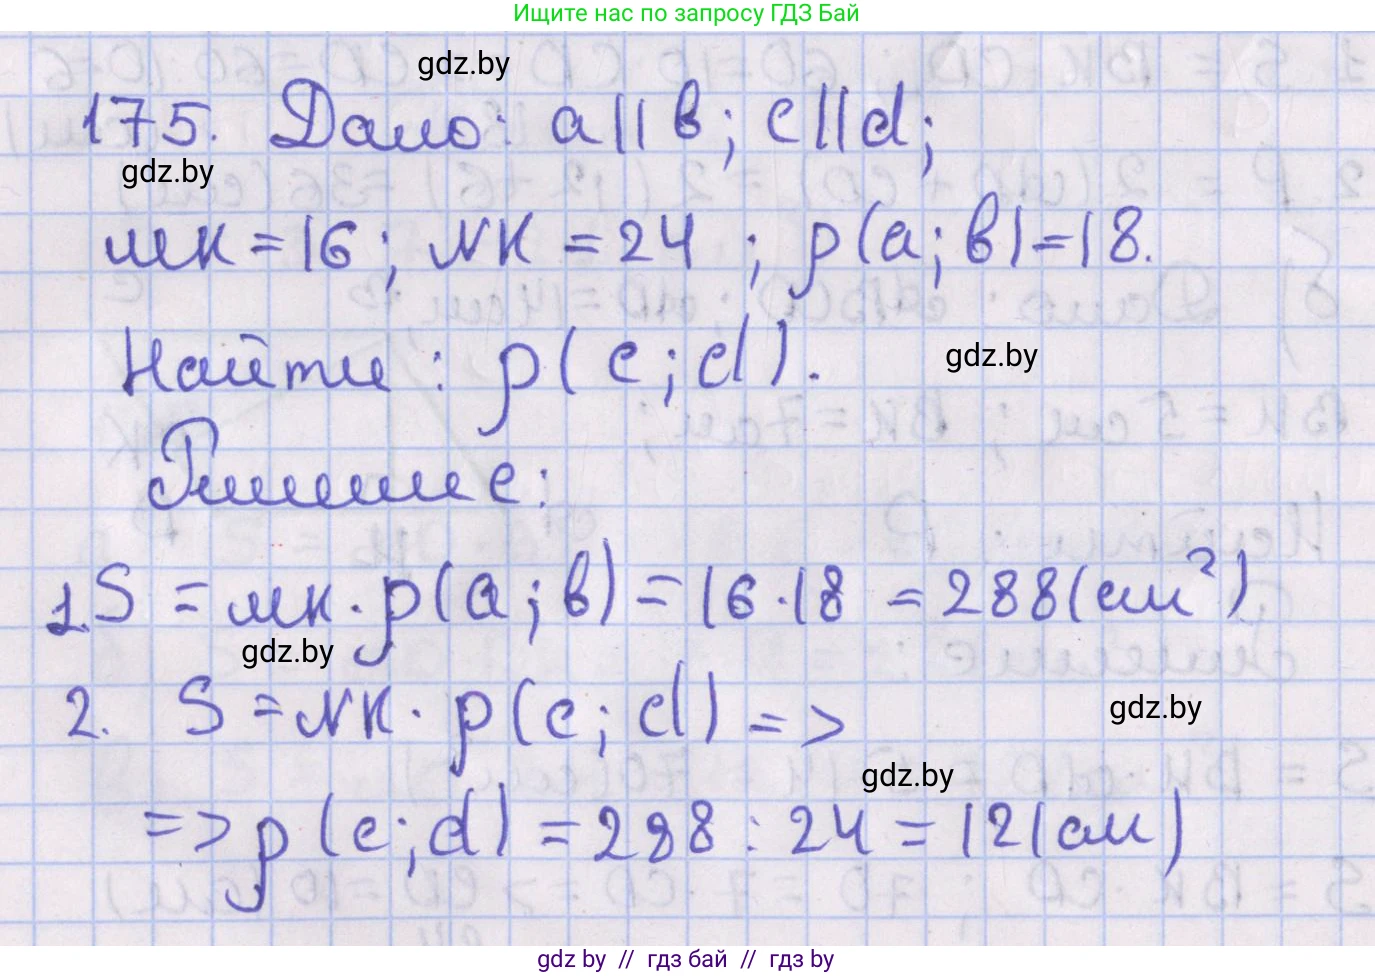 Ищите нас по запросу ГДЗ Бай
gdz.by
175. Дано: a||b; c||d;
gdz.by
MK = 16; NK = 24 ; ρ(a; b) = 18.
Найти: ρ(c; d).
gdz.by
Решение:
1. S = MK · ρ(a; b) = 16 · 18 = 288 (см²)
gdz.by
2. S = NK · ρ(c; d) =>
gdz.by
gdz.by
=> ρ(c; d) = 288 : 24 = 12 (см)
gdz by // гдз бай // гдз by